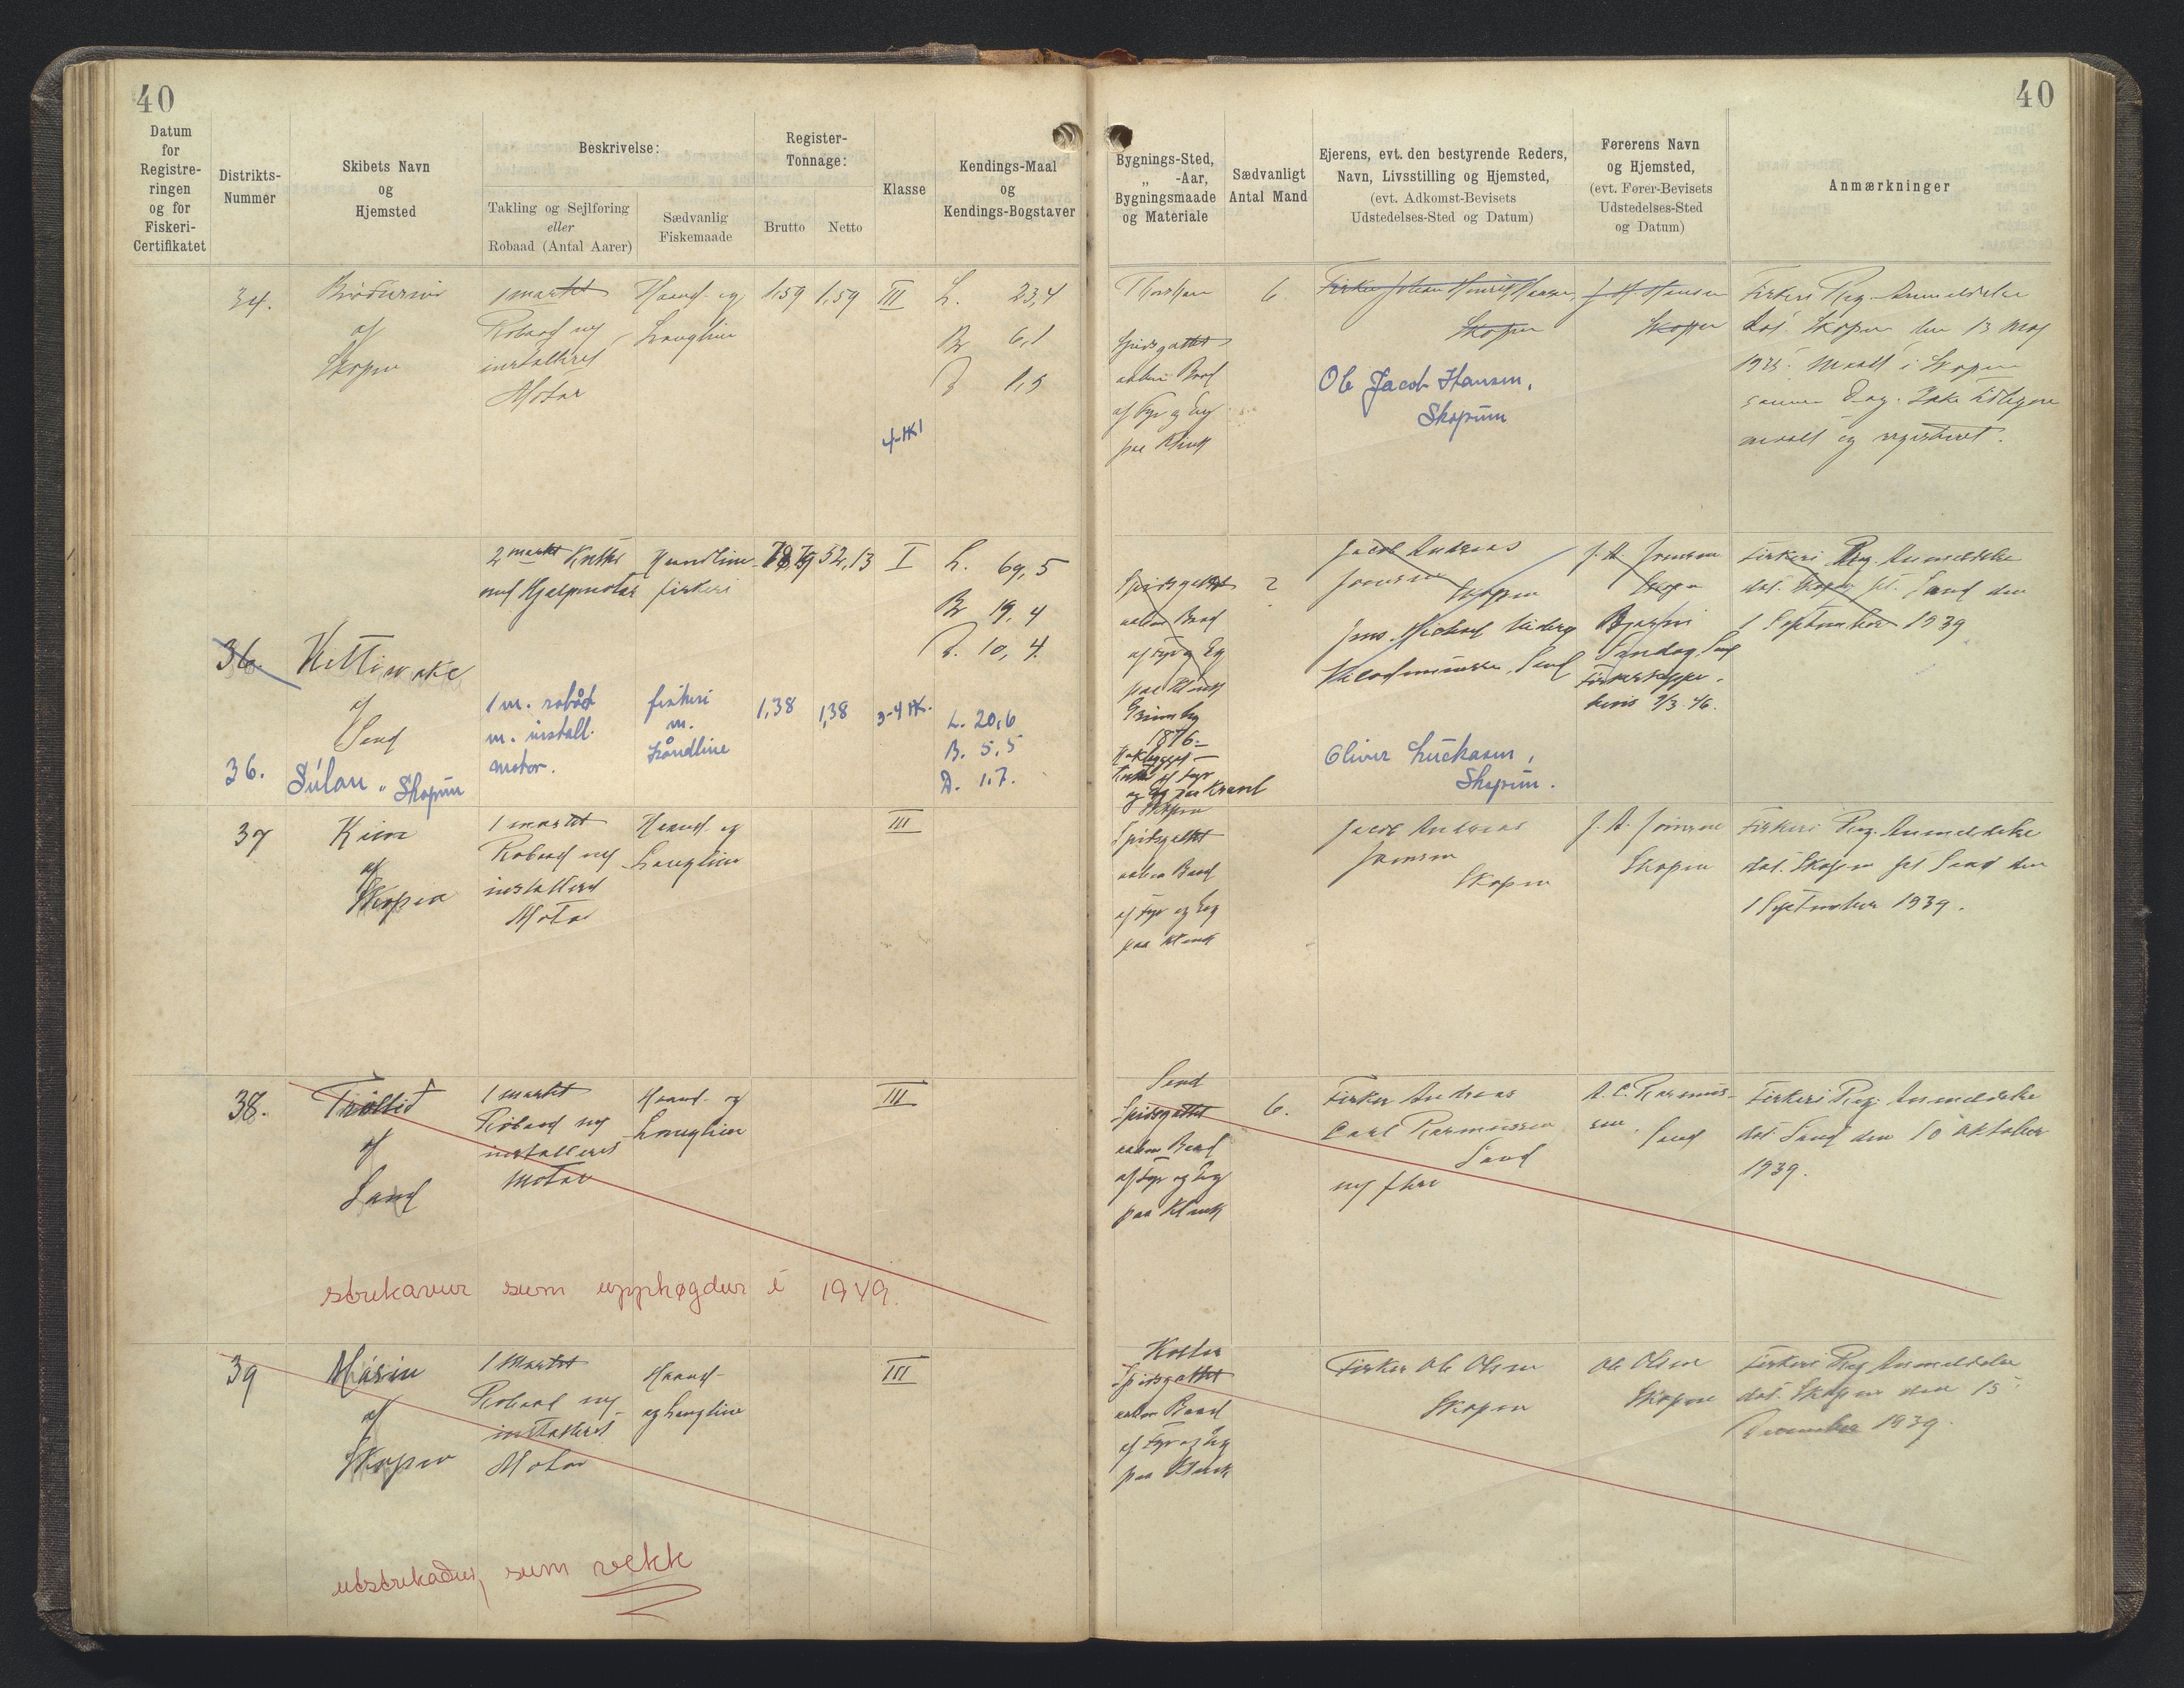 40
40
Datum
for
Registre-
ringen
og for
Fiskeri-
Certifikatet
Distrikts-
Nummer
Skibets Navn
og
Hjemsted
Beskrivelse:
Takling og Sejlføring
eller
Robaad (Antal Aarer)
Sædvanlig
Fiskemaade
Register-
Tonnage:
Brutto
Netto
Klasse
Kendings-Maal
og
Kendings-Bogstaver
Bygnings-Sted,
„ -Aar,
Bygningsmaade
og Materiale
Sædvanligt
Antal Mand
Ejerens, evt. den bestyrende Reders,
Navn, Livsstilling og Hjemsted,
(evt. Adkomst-Bevisets
Udstedelses-Sted og Datum)
Førerens Navn
og Hjemsted,
(evt. Fører-Bevisets
Udstedelses-Sted
og Datum)
Anmærkninger
34.
af
Skopen
1 mastet
Robaad
installeret
Motor
Haand- og
Langline
1,59
1,59
III
4 HK
L. 23,4
Br 6,1
D 1,5
Thorshavn
Spidsgattet
aaben Baad
af Fyr og Eg
paa Klink
6
Fisker Johan Henrik Hansen,
Skopen
Ole Jacob Hansen,
Skopun
J. H. Hansen
Skopen
Fiskeri Reg. Anmeldelse
dat. Skopen den 13 Maj
1925. Maalt i Skopen
samme Dag. Ikke tidligere
maalt og registreret.
36.
Kittiwake
af
Sand
2 mastet Kutter
med Hjælpemotor
Haandline-
fiskeri
78,79
52,13
I
L. 69,5
Br 19,4
D. 10,4
Spidsgattet
aaben Baad
af Fyr og Eg
paa Klink
Grimsby
1876
af Fyr
og Eg paa Kravel
?
Jacob Andreas
Joensen
Skopen
Jens Michael
Sand
J. A. Joensen
Skopen
Sand
Fiskeskipper-
bevis 9/3 46.
Fiskeri Reg. Anmeldelse
dat. Skopen pt. Sand den
1 September 1939
36.
Súlan " Skopun
1 m. robåd
m. install.
motor.
fiskeri
m.
håndline
1,38
1,38
3-4 HK.
L. 20,6
B. 5,5
D. 1.7.
Oliver Lückasen,
Skopun.
37
af
Skopen
1 mastet
Robaad
installeret
Motor
Haand- og
Langline
III
Skopen
Spidsgattet
aaben Baad
af Fyr og Eg
paa Klink
Jacob Andreas
Joensen
Skopen
J. A. Joensen
Skopen
Fiskeri Reg. Anmeldelse
dat. Skopen pt Sand den
1 September 1939.
38.
Trøllið
af
Sand
1 mastet
Robaad
installeret
Motor
Haand- og
Langline
III
strikavur sum upphøgdur í 1949.
Sand
Spidsgattet
aaben Baad
af Fyr og Eg
paa Klink
6.
Fisker Andreas
Carl Rasmussen
Sand
A. C. Rasmus-
sen. Sand
Fiskeri Reg. Anmeldelse
dat. Sand den 10 Oktober
1939.
39
Másin
af
Skopen
1 Mastet
Robaad
installeret
Motor
Haand-
og Langline
III
utstrikaður, sum vekk
Spidsgattet
aaben Baad
af Fyr og Eg
paa Klink
Fisker Ole Olsen
Skopen
Ole Olsen
Skopen
Fiskeri Reg Anmeldelse
dat. Skopen den 15
December 1939.